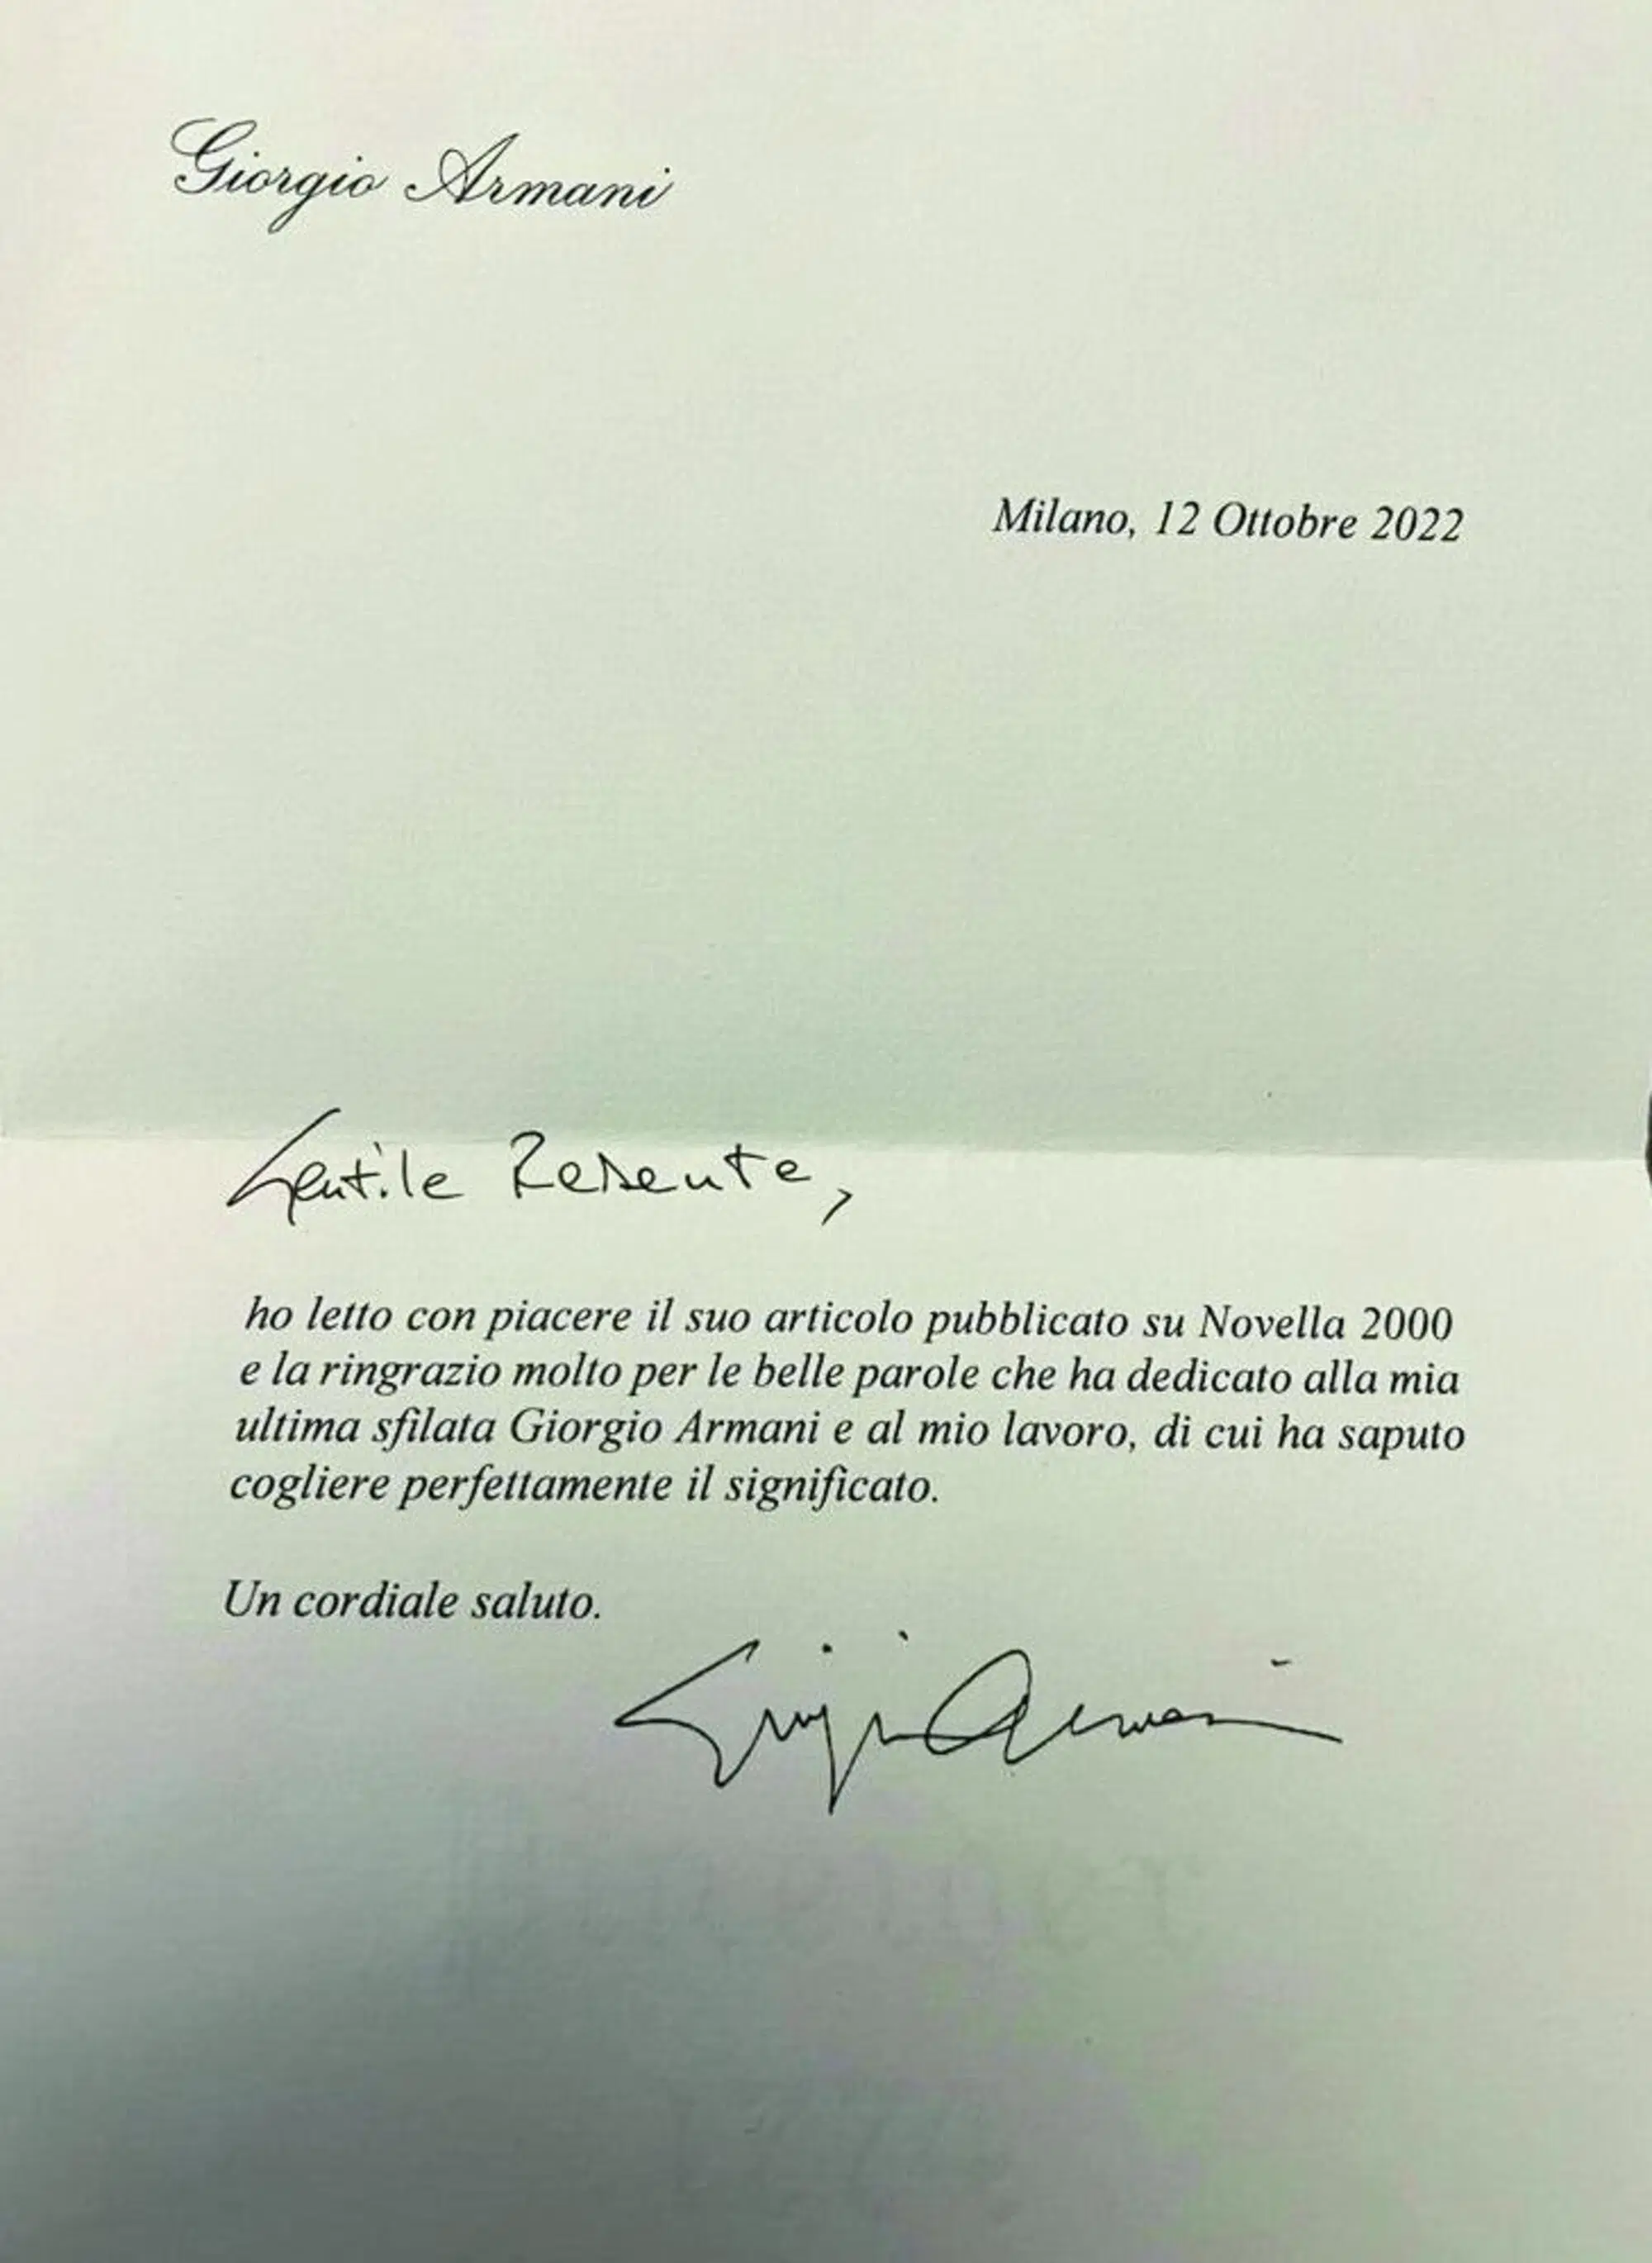 Giorgio Armani
Milano, 12 Ottobre 2022
Gentile Resente,
ho letto con piacere il suo articolo pubblicato su Novella 2000
e la ringrazio molto per le belle parole che ha dedicato alla mia
ultima sfilata Giorgio Armani e al mio lavoro, di cui ha saputo
cogliere perfettamente il significato.
Un cordiale saluto.
Giorgio Armani